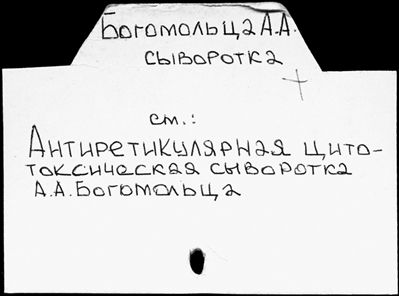 Богомольца А.А.
сыворотка
см.:
Антиретикулярная цито-
токсическая сыворотка
А.А. Богомольца